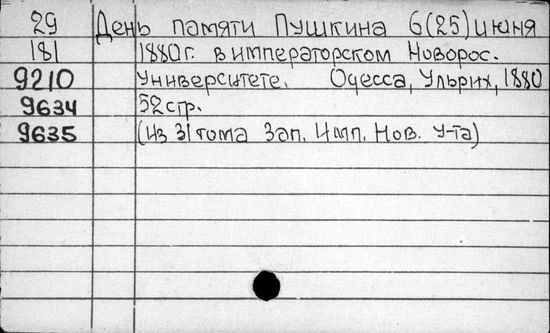 29 День памяти Пушкина 6(25) июня
181 1880г. в императорском Новорос.
9210 Университете. Одесса, Ульрих, 1880
9634 52 стр.
9635 (Из 31 тома Зап. Имп. Нов. У-та)